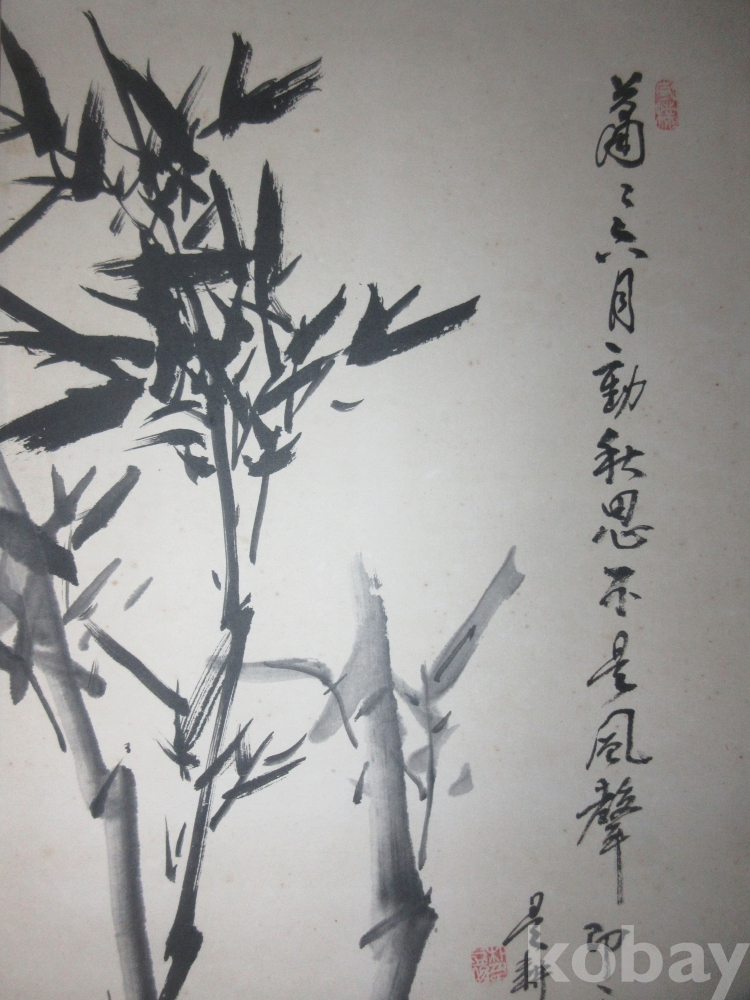 蕭〻六月動秋思不是風聲即
kobay